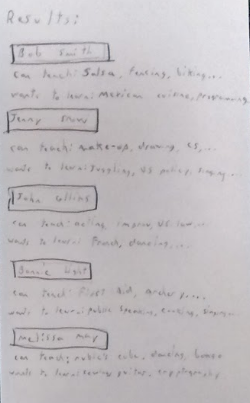 Results:
Bob Smith
can teach: Salsa, fencing, hiking...
wants to learn: Mexican cuisine, programming
Jenny Snow
can teach: make-up, drawing, CS, ...
wants to learn: juggling, US policy, singing...
John Collins
can teach: acting, improv, US law...
wants to learn: French, dancing, ...
light
can teach: First Aid, Archery, ...
wants to learn: public speaking, cooking,
Melissa May
can teach: rubik's cube, dancing,
wants to learn: guitar, cryptography